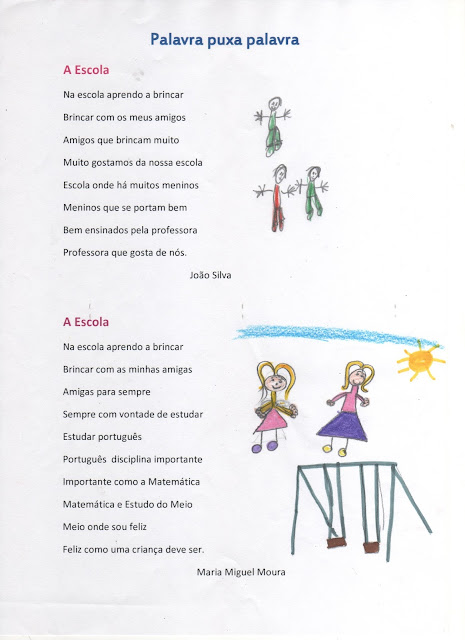 Palavra puxa palavra
A Escola
Na escola aprendo a brincar
Brincar com os meus amigos
Amigos que brincam muito
Muito gostamos da nossa escola
Escola onde há muitos meninos
Meninos que se portam bem
Bem ensinados pela professora
Professora que gosta de nós.
João Silva
A Escola
Na escola aprendo a brincar
Brincar com as minhas amigas
Amigas para sempre
Sempre com vontade de estudar
Estudar português
Português  disciplina importante
Importante como a Matemática
Matemática e Estudo do Meio
Meio onde sou feliz
Feliz como uma criança deve ser.
Maria Miguel Moura